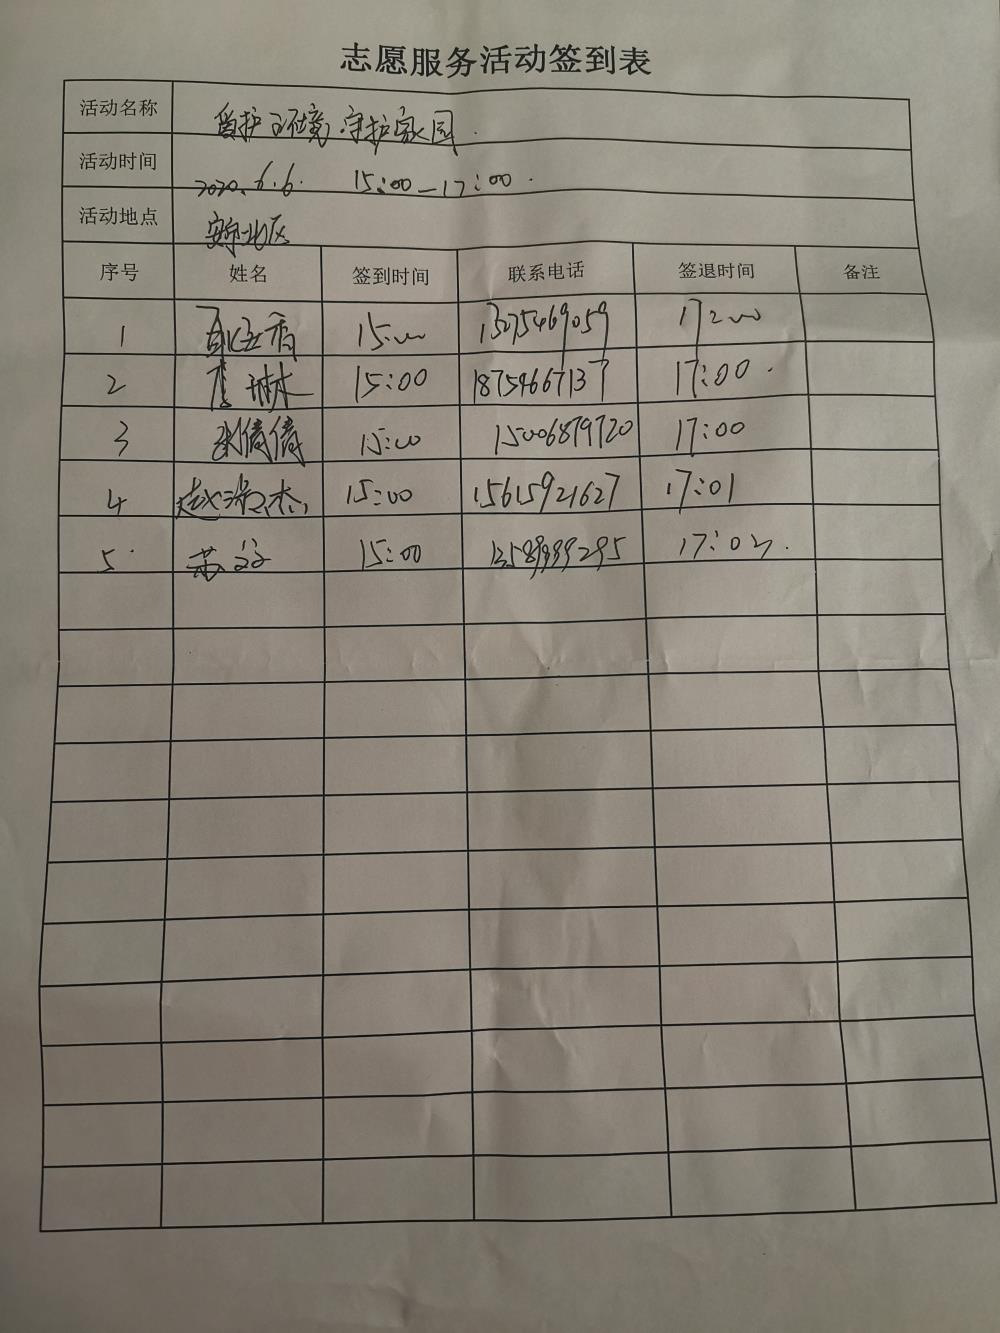 志愿服务活动签到表
活动名称 爱护环境 守护家园.
活动时间 2020.6.6. 15:00—17:00.
活动地点 北区
序号 姓名 签到时间 联系电话 签退时间 备注
1 15:00 13275469059 17:00
2 李琳 15:00 18754667137 17:00.
3 倩倩 15:00 15006879720 17:00
4 赵 杰 15:00 15615921627 17:01
5. 苏 15:00 17:02.